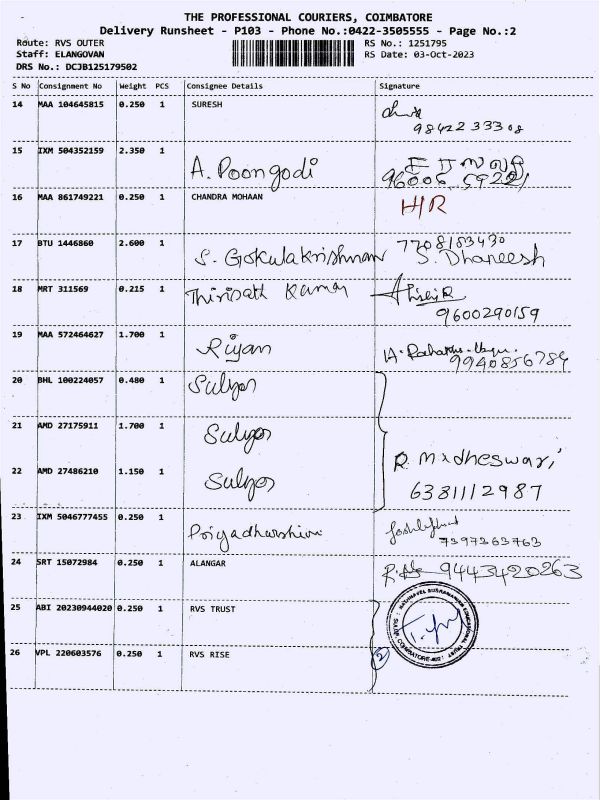 THE PROFESSIONAL COURIERS, COIMBATORE
Delivery Runsheet - P103 - Phone No.:0422-3505555 - Page No.:2
Route: RVS OUTER
Staff: ELANGOVAN
DRS No.: DCJB125179502
RS No.: 1251795
RS Date: 03-Oct-2023
S No Consignment No Weight PCS Consignee Details Signature
14 MAA 104645815 0.250 1 SURESH
98422 33308
15 IXM 504352159 2.350 1 A. Poongodi
16 MAA 861749221 0.250 1 CHANDRA MOHAAN H/R
17 BTU 1446860 2.600 1 S. Gokulakrishnan 7708183430
S. Dhaneesh
18 MRT 311569 0.215 1
9600290159
19 MAA 572464627 1.700 1 Riyan
9940856784
20 BHL 100224057 0.480 1 Sulyor
21 AMD 27175911 1.700 1 Sulyor
22 AMD 27486210 1.150 1 Sulyor
R. Madheswari
6381112987
23 IXM 5046777455 0.250 1 Priyadharshini
7397263763
24 SRT 15072984 0.250 1 ALANGAR 9443420263
25 ABI 20230944020 0.250 1 RVS TRUST
26 VPL 220603576 0.250 1 RVS RISE 2